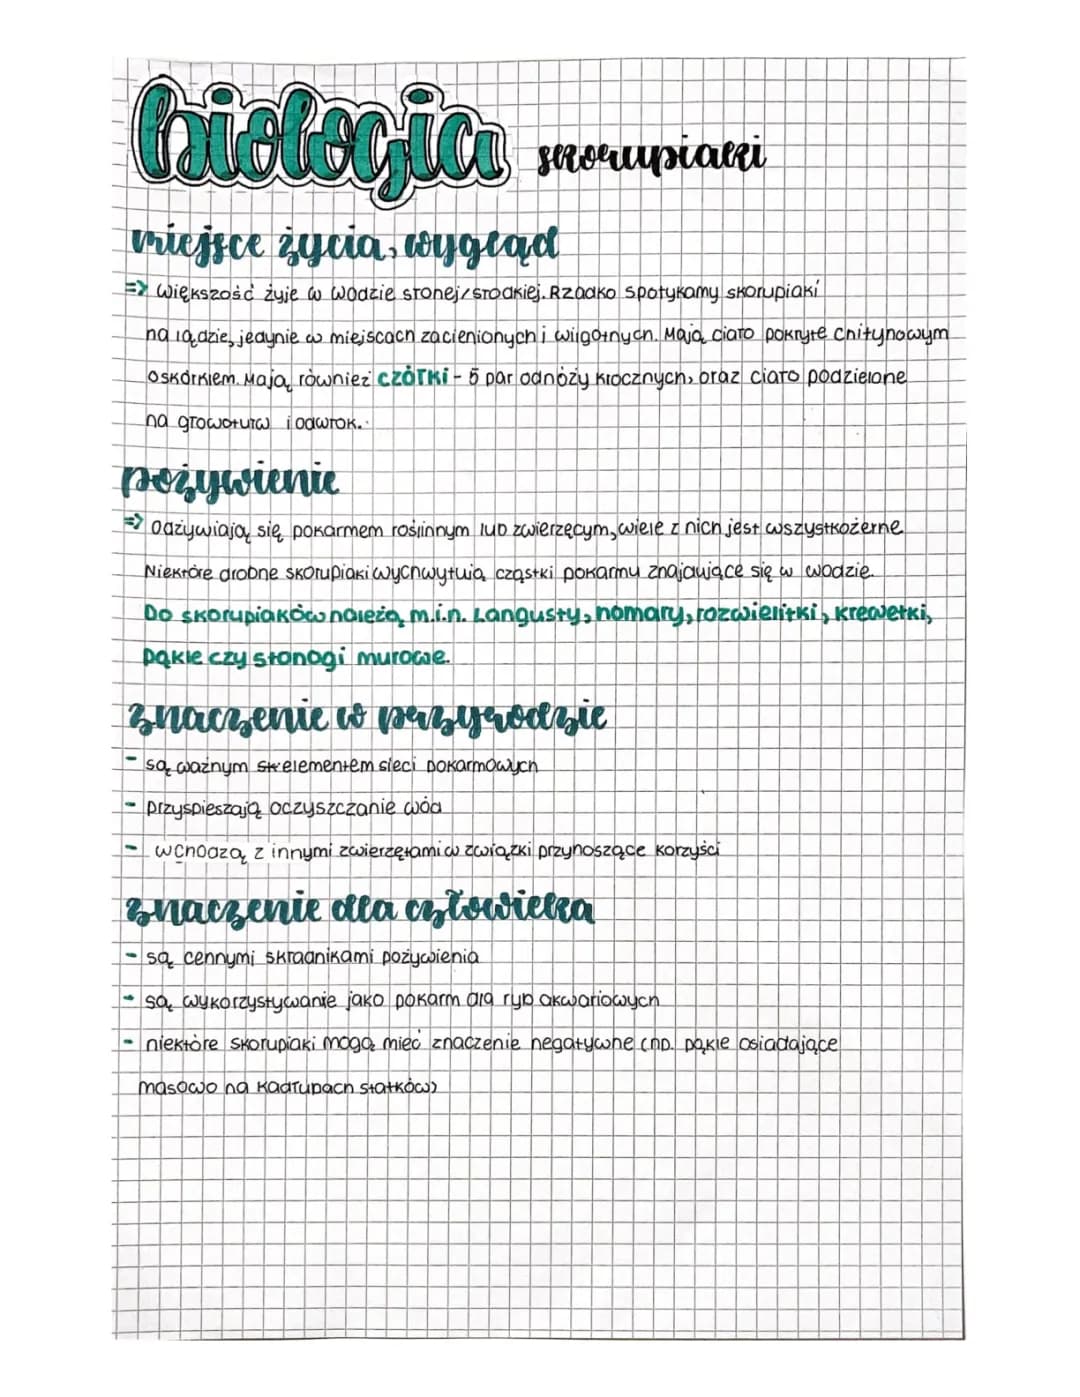 biologia skorupiaki
miejsce życia, wygląd
=> większość żyje w wodzie słonej/słodkiej. Rzadko spotykamy skorupiaki
na lądzie, jedynie w miejscach zacienionych i wilgotnych. Mają ciało pokryte chitynowym
oskórkiem. Mają również czółki - 5 par odnóży krocznych, oraz ciało podzielone
na głowotułw i odwłok.
pożywienie
=> odżywiają się pokarmem roślinnym lub zwierzęcym, wiele z nich jest wszystkożerne
Niektóre drobne skorupiaki wychwytują cząstki pokarmu znajdujące się w wodzie.
Do skorupiaków należą m.in. Langusty, homary, rozwielitki, krewetki,
pąkle czy stonogi murowe.
znaczenie w przyrodzie
- są ważnym elementem sieci pokarmowych
- przyspieszają oczyszczanie wód
- wchodzą z innymi zwierzętami w związki przynoszące korzyści
znaczenie dla człowieka
- są cennymi składnikami pożywienia
- są wykorzystywanie jako pokarm dla ryb akwariowych
- niektóre skorupiaki mogą mieć znaczenie negatywne (np. pąkle osiadające
masowo na kadłubach statków)